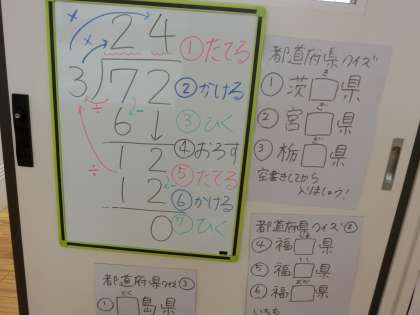 24
①たてる
3)72
②かける
6
③ひく
④おろす
12
⑤たてる
12
⑥かける
0
⑦ひく
都道府県クイズ
①茨□県
②宮□県
③栃□県
空書きしてから
入りましょう!
都道府県クイズ②
④福□県
⑤福□県
⑥福□県
都道府県クイズ③
①□島県